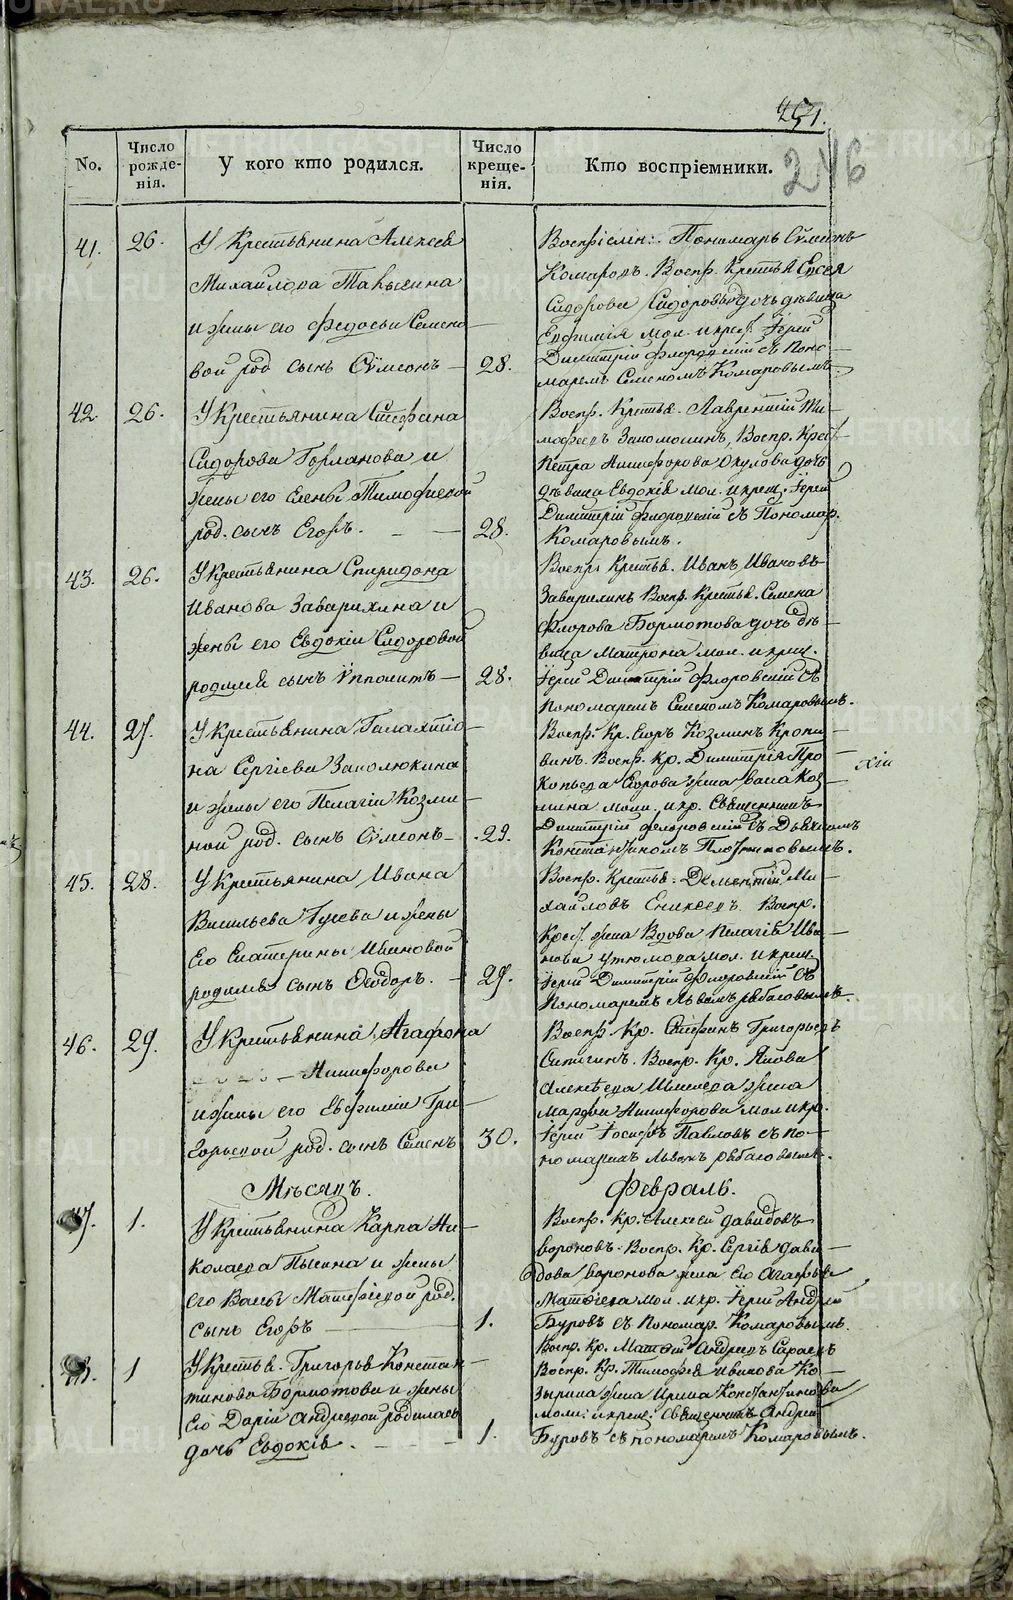 251.
246
No.
Число рожде-нія.
У кого кто родился.
Число креще-нія.
Кто воспріемники.
41. 26.
У Крестьянина Алексея
Михайлова
и жены его Федосьи Семено-
вой род сынъ Сѵмеонъ 28.
Пономарь Сѵмеонъ
Комаровъ. Воспр. Крестья Евсея
Сидорова Сидоровыхъ дочь девица
Евфимія мол. и крест. Іерей
Димитрій Флоровскій съ Поно-
маремъ Семеномъ Комаровымъ.
42. 26.
У Крестьянина Стефана
Сидорова Горланова и
жены его Елены Тимофеевой
род. сынъ Егоръ. 28.
Воспр. Крестья. Лаврентій Ти-
мофеевъ Воспр. Крест.
Петра Никифорова Окулова дочь
дѣвица Евдокія мол. и крещ. Іерей
Димитрій Флоровскій съ Пономар.
Комаровымъ.
43. 26.
У Крестьянина Спиридона
Иванова Заварихина и
жены его Евдокіи Сидоровой
родился сынъ Ѵпполитъ 28.
Воспр. Крестья. Иванъ Ивановъ
Заварихинъ Воспр. Крестья. Семена
Флорова Бормотова дочь дѣ-
вица Матрона мол. и крещ.
Іерей Димитрій Флоровскій съ
пономаремъ Семеномъ Комаровымъ.
44. 27.
У Крестьянина Галактіо-
на Сергіева
и жены его Пелагіи Козми-
ной род. сынъ Сѵмеонъ 29.
Воспр. Кр. Егоръ Козминъ Кропи-
винъ. Воспр. Кр. Димитрія Про-
копьева Егорова жена Васа Коз-
мина молит. и кр. Священникъ
Димитрій Флоровскій съ Дьячкомъ
Константиномъ Плотниковымъ.
хіи
45. 28.
У Крестьянина Ивана
Васильева Гусева и жены
Его Екатерины Ивановой
родился сынъ Ѳеодоръ. 29.
Воспр. Крестья. Дементій Ми-
хайловъ Еникеевъ Воспр.
Крест. жена Вдова Пелагія Ива-
нова Утюмова мол. и крещ.
Іерей Димитрій Флоровскій съ
Пономаремъ Львомъ Рыболовымъ.
46. 29.
У Крестьянина Агафона
Никифорова
и жены его Евфиміи Гри-
горьевой род. сынъ Семенъ 30.
Воспр. Кр. Стефанъ Григорьевъ
Ситигинъ. Воспр. Кр. Якова
Алексѣева жена
Марфа Никифорова мол и кр.
Іерей Іосифъ Павловъ съ по-
номаремъ Львомъ Рыболовымъ.
Мѣсяцъ. Февраль.
47. 1.
У Крестьянина Карпа Ни-
колаева Пысина и жены
его Васы Матфіевой род.
сынъ Егоръ 1.
Воспр. Кр. Алексей Давыдовъ
Вороновъ. Воспр. Кр. Сергія Давы-
дова Воронова жена Его Агафья
Матфіева мол. и кр. Іерей Андрей
Буровъ съ Пономар. Комаровымъ.
48. 1
У Крестья. Григорья Констан-
тинова Бормотова и жены
Его Даріи Андреевой родилась
дочь Евдокія. 1.
Воспр. Кр. Матѳій Андреевъ Сараевъ
Воспр. Кр. Тимофея Иванова Ко-
зырина жена Ирина Константинова
моли: и крещ: Священникъ Андрей
Буровъ съ пономаремъ Комаровымъ.